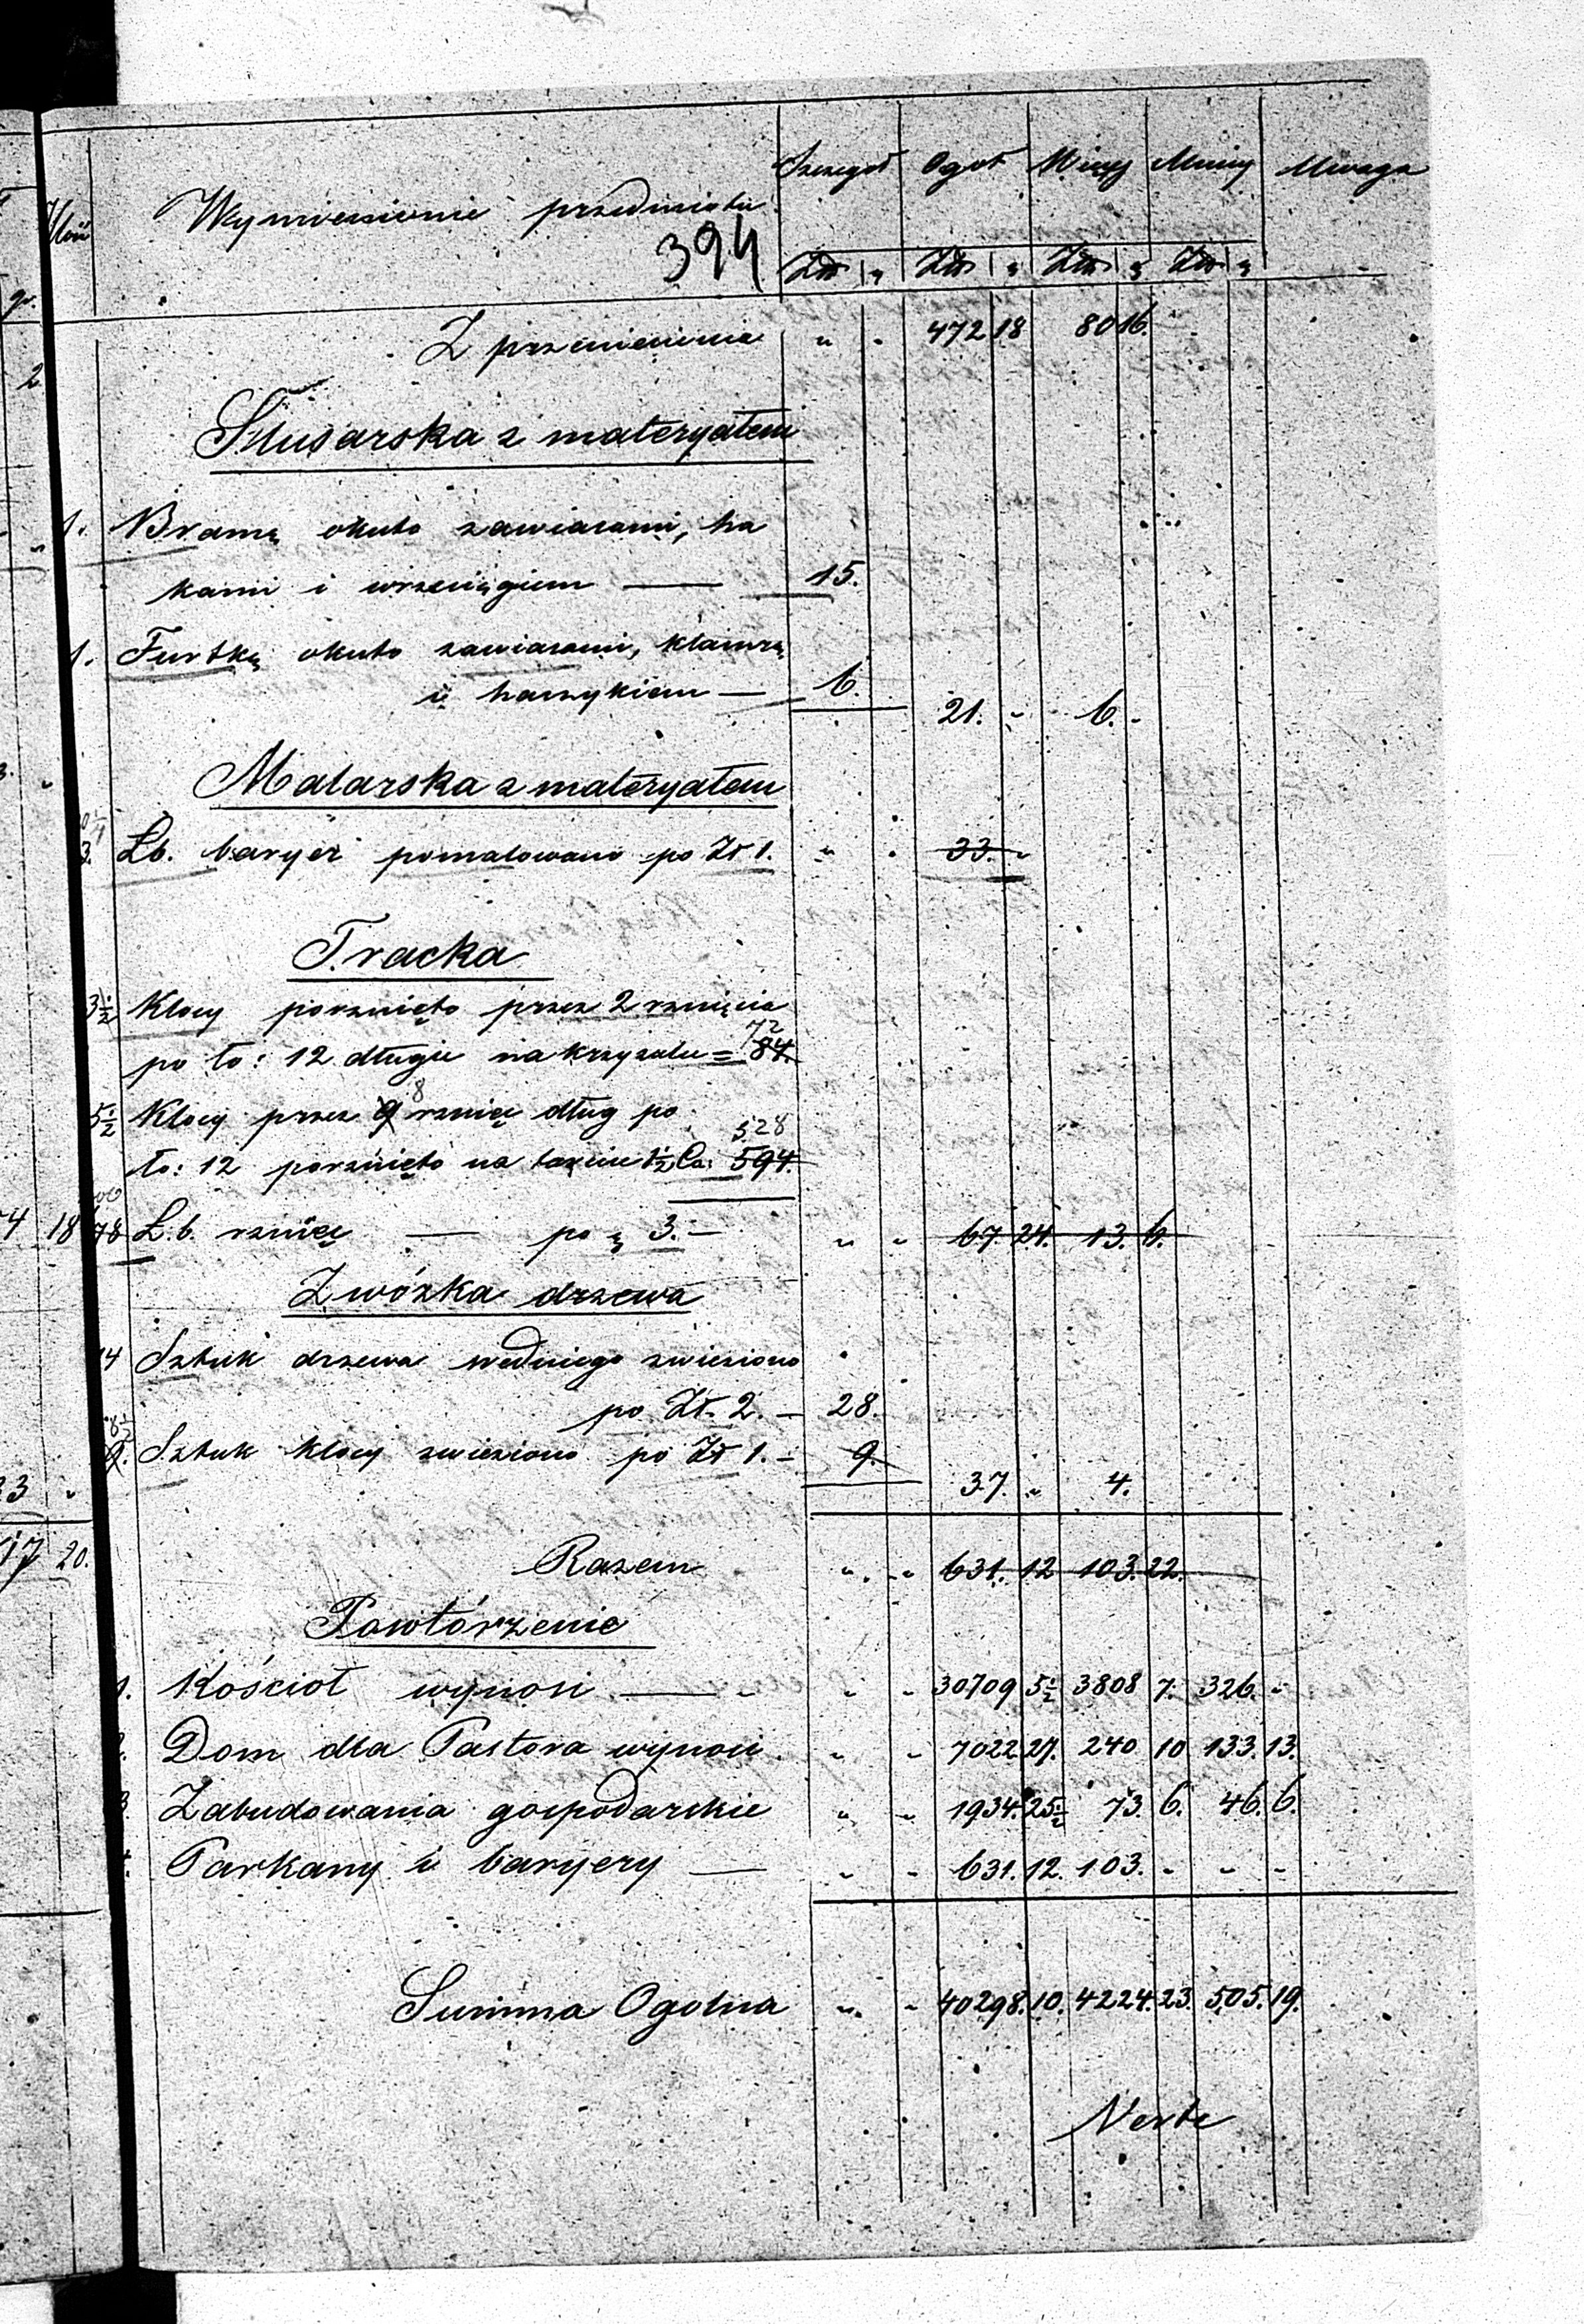 Ilość Wymienienie przedmiotu Szczegół Ogół Więcej Mniej Uwaga
394
Złt g Złt g Złt g Złt g
Z przeniesienia " " 472 18 80 16.
Slusarska z materyałem
1. Bramę okuto zawiasami, ha
kami i wrzeciągiem — 15.
1. Furtkę okuto zawiasami, klamrą
i haczykiem — 6. 21. " 6. "
Malarska z materyałem
3. Łb. baryer pomalowano po Zł 1. " " 33. "
Tracka
3½ Klocy porznięto przez 2 rznięcia
72
po Ło: 12 długie na krzyzulu = 84.
8
5½ Klocy przez 9 rznięć dług po
528
Ło: 12 porznięto na tarcice 1½ Ca: 594.
78 Ł.b. rznięć — po g 3. — " " 67. 24. 13. 6.
Zwózka drzewa
14 Sztuk drzewa średniego zwieziono
po Zł. 2. — 28.
8½
9. Sztuk klocy zwieziono po Zł 1. — 9. 37. " 4.
Razem " " 631. 12 103. 22.
Powtórzenie
1. Kościoł wynosi — " " 30709 5½ 3808 7. 326. "
2. Dom dla Pastora wynosi " " 7022 27. 240 10 133. 13.
3. Zabudowania gospodarskie " " 1934. 25½ 73. 6. 46. 6.
4. Parkany i baryery — " " 631. 12. 103. " " "
Summa Ogolna " " 40298. 10. 4224. 23. 505. 19.
Verte